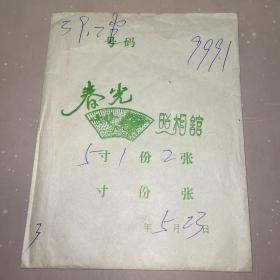 号码
9991
春光
照相舘
5寸1份2张
寸 份 张
年5月23日
3